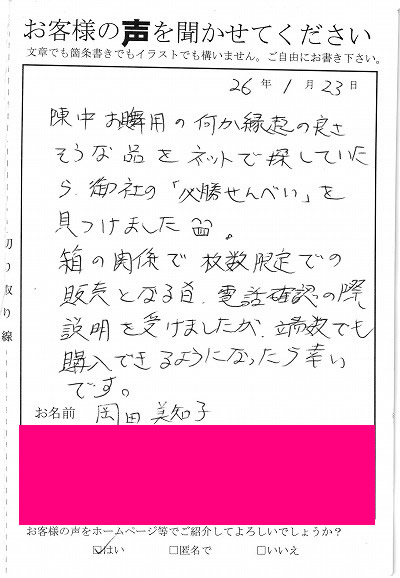 お客様の声を聞かせてください
文章でも箇条書きでもイラストでも構いません。ご自由にお書き下さい。
26年1月23日
陳中お購用の何か縁起の良さ
そうな品をネットで探していた
ら、御社の「必勝せんべい」を
見つけました。
箱の関係で枚数限定での
販売となる旨、電話確認の際、
説明を受けましたが、端数でも
購入できるようになったら幸い
です。
お名前 岡田美知子
お客様の声をホームページ等でご紹介してよろしいでしょうか?
☑はい □匿名で □いいえ
切り取り線